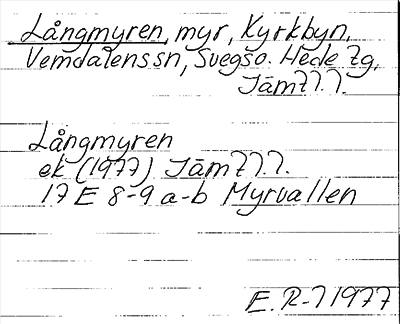 Långmyren, myr, Kyrkbyn,
Vemdalens sn, Svegs o. Hede tg,
Jämtl. l.
Långmyren
ek (1977) Jämtl. l.
17 E 8-9 a-b Myrvallen
E. R-l 1977